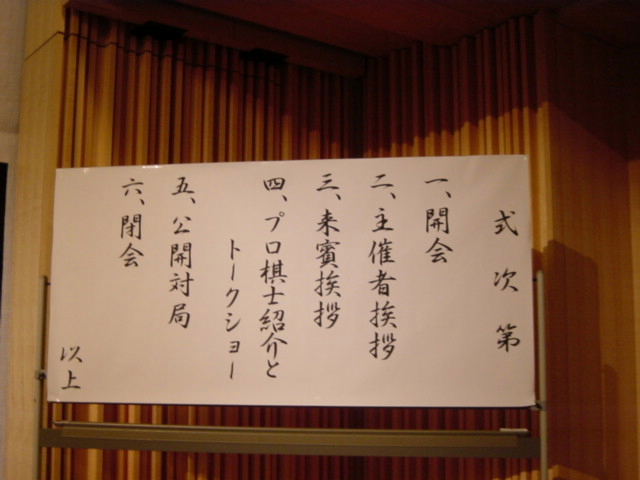 式次第
一、開会
二、主催者挨拶
三、来賓挨拶
四、プロ棋士紹介と
トークショー
五、公開対局
六、閉会
以上